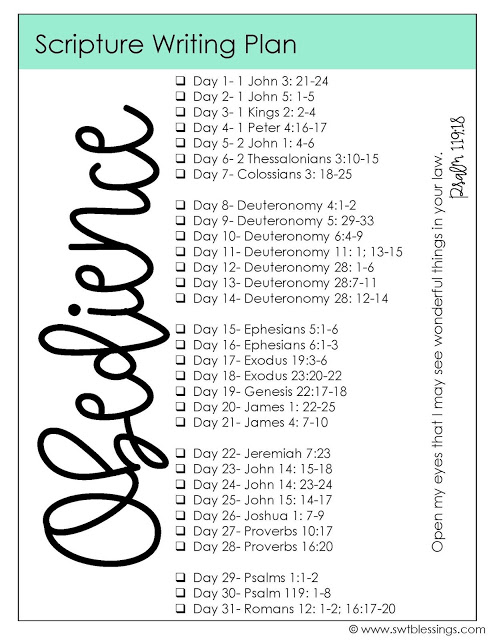 Scripture Writing Plan
Obedience
❑ Day 1- 1 John 3: 21-24
❑ Day 2- 1 John 5: 1-5
❑ Day 3- 1 Kings 2: 2-4
❑ Day 4- 1 Peter 4:16-17
❑ Day 5- 2 John 1: 4-6
❑ Day 6- 2 Thessalonians 3:10-15
❑ Day 7- Colossians 3: 18-25
❑ Day 8- Deuteronomy 4:1-2
❑ Day 9- Deuteronomy 5: 29-33
❑ Day 10- Deuteronomy 6:4-9
❑ Day 11- Deuteronomy 11: 1; 13-15
❑ Day 12- Deuteronomy 28: 1-6
❑ Day 13- Deuteronomy 28:7-11
❑ Day 14- Deuteronomy 28: 12-14
❑ Day 15- Ephesians 5:1-6
❑ Day 16- Ephesians 6:1-3
❑ Day 17- Exodus 19:3-6
❑ Day 18- Exodus 23:20-22
❑ Day 19- Genesis 22:17-18
❑ Day 20- James 1: 22-25
❑ Day 21- James 4: 7-10
❑ Day 22- Jeremiah 7:23
❑ Day 23- John 14: 15-18
❑ Day 24- John 14: 23-24
❑ Day 25- John 15: 14-17
❑ Day 26- Joshua 1: 7-9
❑ Day 27- Proverbs 10:17
❑ Day 28- Proverbs 16:20
❑ Day 29- Psalms 1:1-2
❑ Day 30- Psalm 119: 1-8
❑ Day 31- Romans 12: 1-2; 16:17-20
Open my eyes that I may see wonderful things in your law.
Psalm 119:18
© www.swtblessings.com